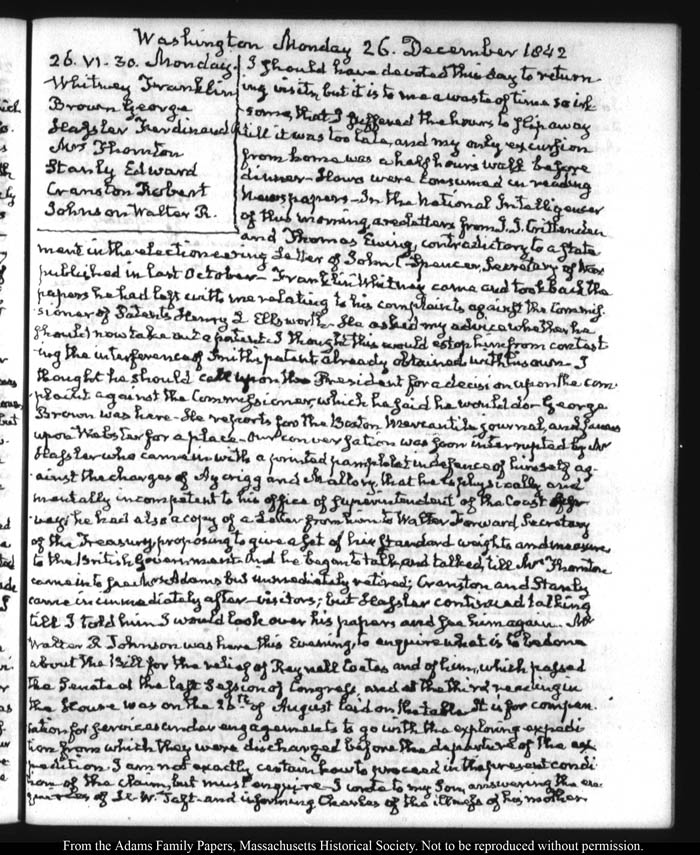 Washington Monday 26. December 1842
26. VI. 30. Monday.
Whitney Franklin
Brown George
Hassler Ferdinand
Mrs Thornton
Stanly Edward
Cranston Robert
Johnson Walter R.
I should have devoted this day to return-
ing visits, but it is to me a waste of time so irk-
some, that I suffered the hours to slip away
till it was too late, and my only excursion
from home was a half hours walk before
dinner. Hours were consumed in reading
Newspapers. In the National Intelligencer
of this morning, are letters from J. J. Crittenden
and Thomas Ewing, contradictory to a state-
ment in the electioneering Letter of John C. Spencer, Secretary of War
published in last October. Franklin Whitney came and took back the
papers he had left with me relating to his complaints against the Commis-
sioner of Patents Henry L Ellsworth. He asked my advice whether he
should now take out a patent. I thought this would estop him from contest-
ing the interference of Smiths patent already obtained with his own. I
thought he should call upon the President for a decision upon the com-
plaint against the Commissioner, which he said he would do. George
Brown was here. He reports for the Boston Mercantile journal, and
upon Webster for a place. Our conversation was soon interrupted by Mr
Hassler who came in with a printed pamphlet in defence of himself ag-
ainst the charges of Aycrigg and Mallory, that he is physically and
mentally incompetent to his office of Superintendent of the Coast
he had also a copy of a Letter from him to Walter Forward, Secretary
of the Treasury, proposing to give a set of his Standard weights and measures
to the British Government. And he began to talk, and talked, till Mrs Thornton
came in to see Mrs Adams but immediately retired; Cranston and Stanly
came in immediately after. visitors; but Hassler continued talking
till I told him I would look over his papers and see him again. Mr
Walter R Johnson was here this Evening, to enquire what is to be done
about the Bill for the relief of Reynell Coates and of him, which passed
the Senate at the last Session of Congress, and at the third reading in
the House was on the 26th of August laid on the table. It is for compen-
sation for services under engagements to go with the exploring expedi-
tion from which they were discharged before the departure of the ex-
pedition. I am not exactly certain how to proceed in the present condi-
tion of the claim, but must enquire. I wrote to my Son, answering the en-
quiries of W. Taft. and informing Charles of the illness of his mother
From the Adams Family Papers, Massachusetts Historical Society. Not to be reproduced without permission.